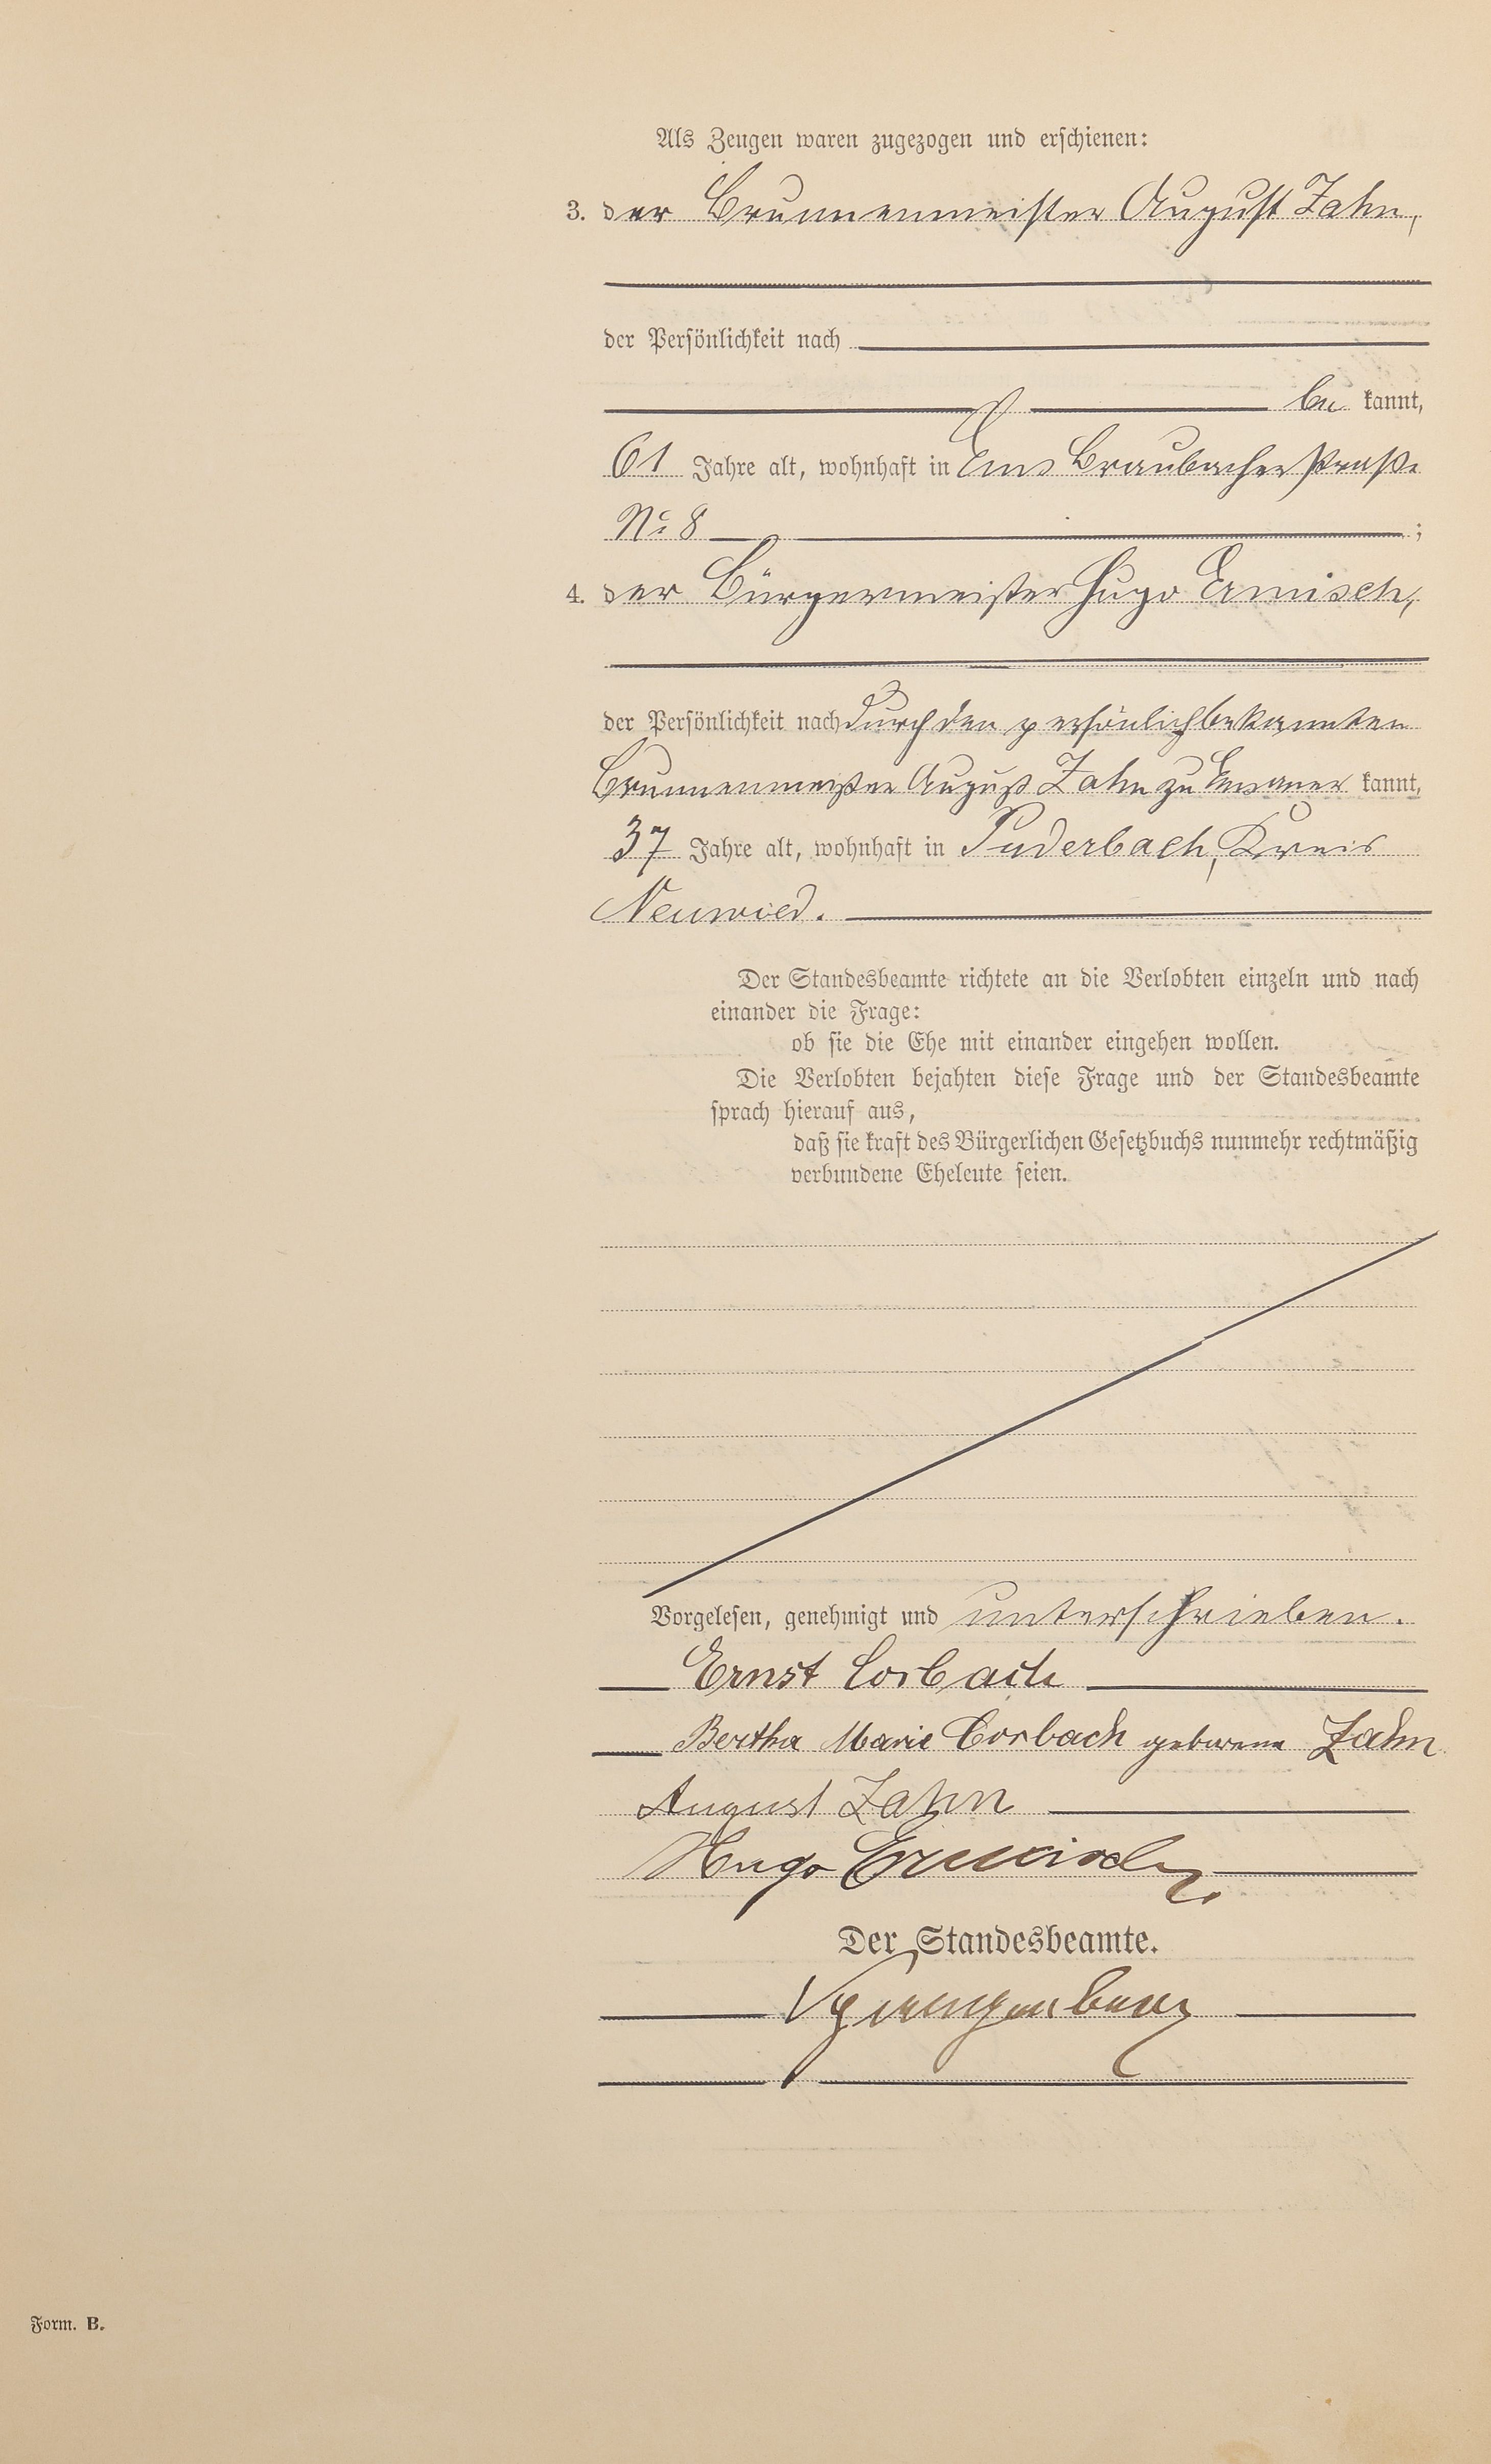 Als Zeugen waren zugezogen und erschienen:
3. der Brunnenmeister August Zahn,
der Persönlichkeit nach
be kannt,
61 Jahre alt, wohnhaft in Ems Braubacher Straße
No 8 ;
4. der Bürgermeister Hugo Ermisch,
der Persönlichkeit nach durch den persönlich bekannten
Brunnenmeister August Zahn zu Ems aner kannt,
37 Jahre alt, wohnhaft in Puderbach, Kreis
Neuwied.
Der Standesbeamte richtete an die Verlobten einzeln und nach
einander die Frage:
ob sie die Ehe mit einander eingehen wollen.
Die Verlobten bejahten diese Frage und der Standesbeamte
sprach hierauf aus,
daß sie kraft des Bürgerlichen Gesetzbuchs nunmehr rechtmäßig
verbundene Eheleute seien.
Vorgelesen, genehmigt und unterschrieben.
Ernst Corbach
Bertha Marie Corbach geborene Zahn
August Zahn
Hugo Ermisch
Der Standesbeamte.
Form. B.